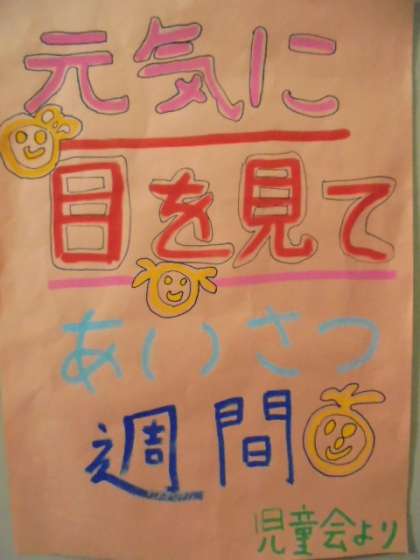 元気に
目を見て
あいさつ
週間
児童会より